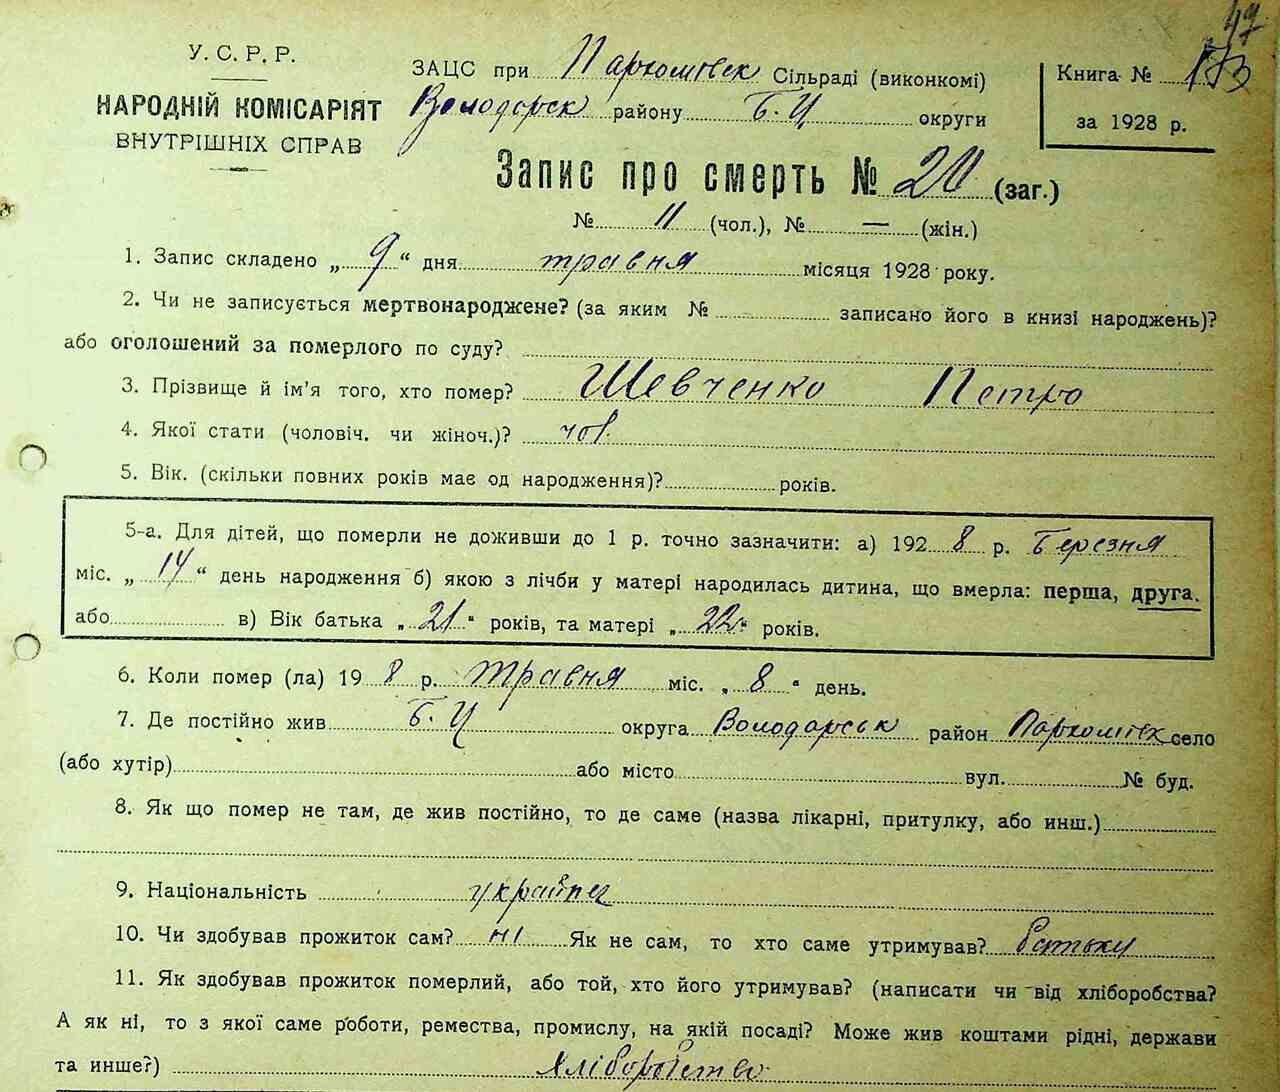 47
У. С. Р. Р.
НАРОДНІЙ КОМІСАРІЯТ
ВНУТРІШНІХ СПРАВ
ЗАЦС при Пархомівск Сільраді (виконкомі)
Володарск району Б. Ц округи
Книга № 173
за 1928 р.
Запис про смерть № 20 (заг.)
№ 11 (чол.), № — (жін.)
1. Запис складено „ 9 “ дня травня місяця 1928 року.
2. Чи не записується мертвонароджене? (за яким № записано його в книзі народжень)?
або оголошений за померлого по суду?
3. Прізвище й ім'я того, хто помер? Шевченко Петро
4. Якої стати (чоловіч. чи жіноч.)? чов.
5. Вік. (скільки повних років має од народження)? років.
5-а. Для дітей, що померли не доживши до 1 р. точно зазначити: а) 192 8 р. Березня
міс. „ 14 “ день народження б) якою з лічби у матері народилась дитина, що вмерла: перша, друга.
або в) Вік батька „ 21 “ років, та матері „ 22 “ років.
6. Коли помер (ла) 19 8 р. травня міс. „ 8 “ день.
7. Де постійно жив Б. Ц округа Володарськ район Пархомівск село
(або хутір) або місто вул. № буд.
8. Як що помер не там, де жив постійно, то де саме (назва лікарні, притулку, або инш.)
9. Національність українец
10. Чи здобував прожиток сам? ні Як не сам, то хто саме утримував? батьки
11. Як здобував прожиток померлий, або той, хто його утримував? (написати чи від хліборобства?
А як ні, то з якої саме роботи, ремества, промислу, на якій посаді? Може жив коштами рідні, держави
та инше?) Хліборобство